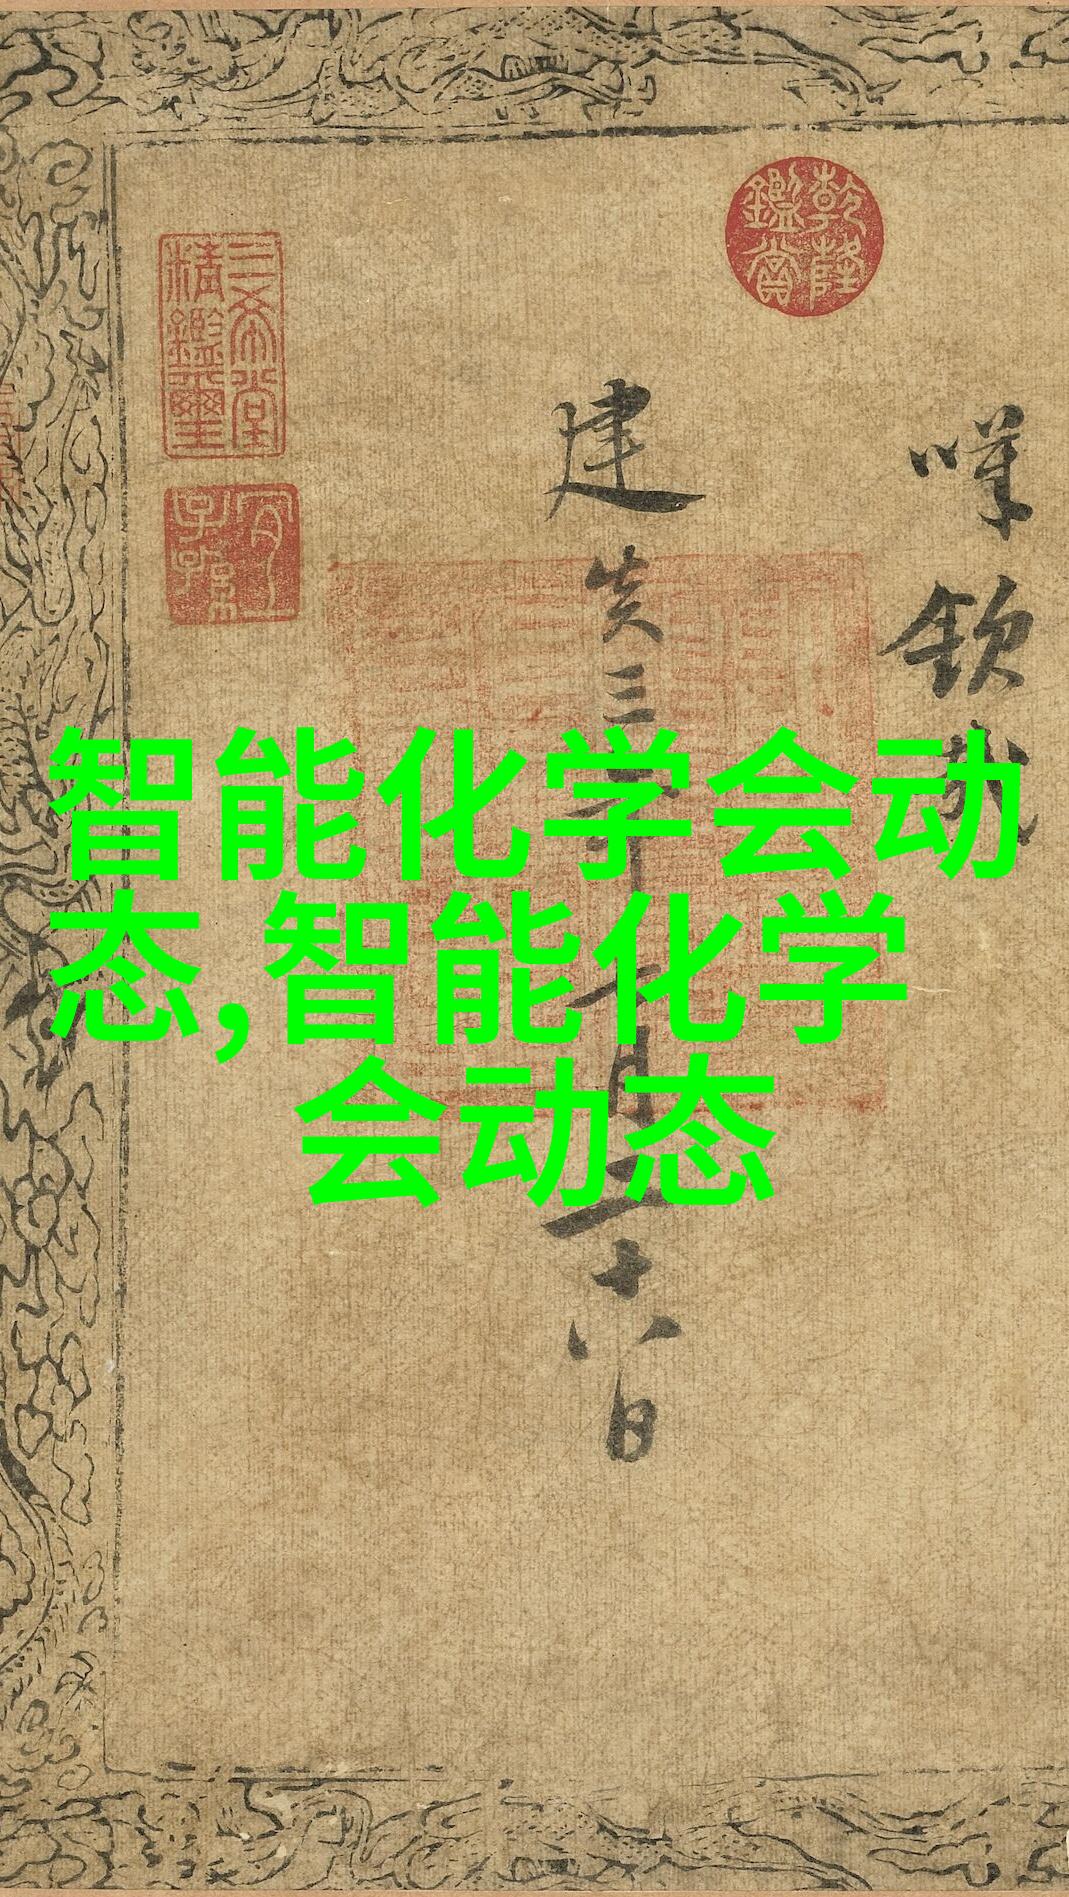 乾隆鑑賞
欽哉
建炎三年
月二十八日
三希堂精鑑璽
宜子孫
智能化学会动
态,智能化学
会动态